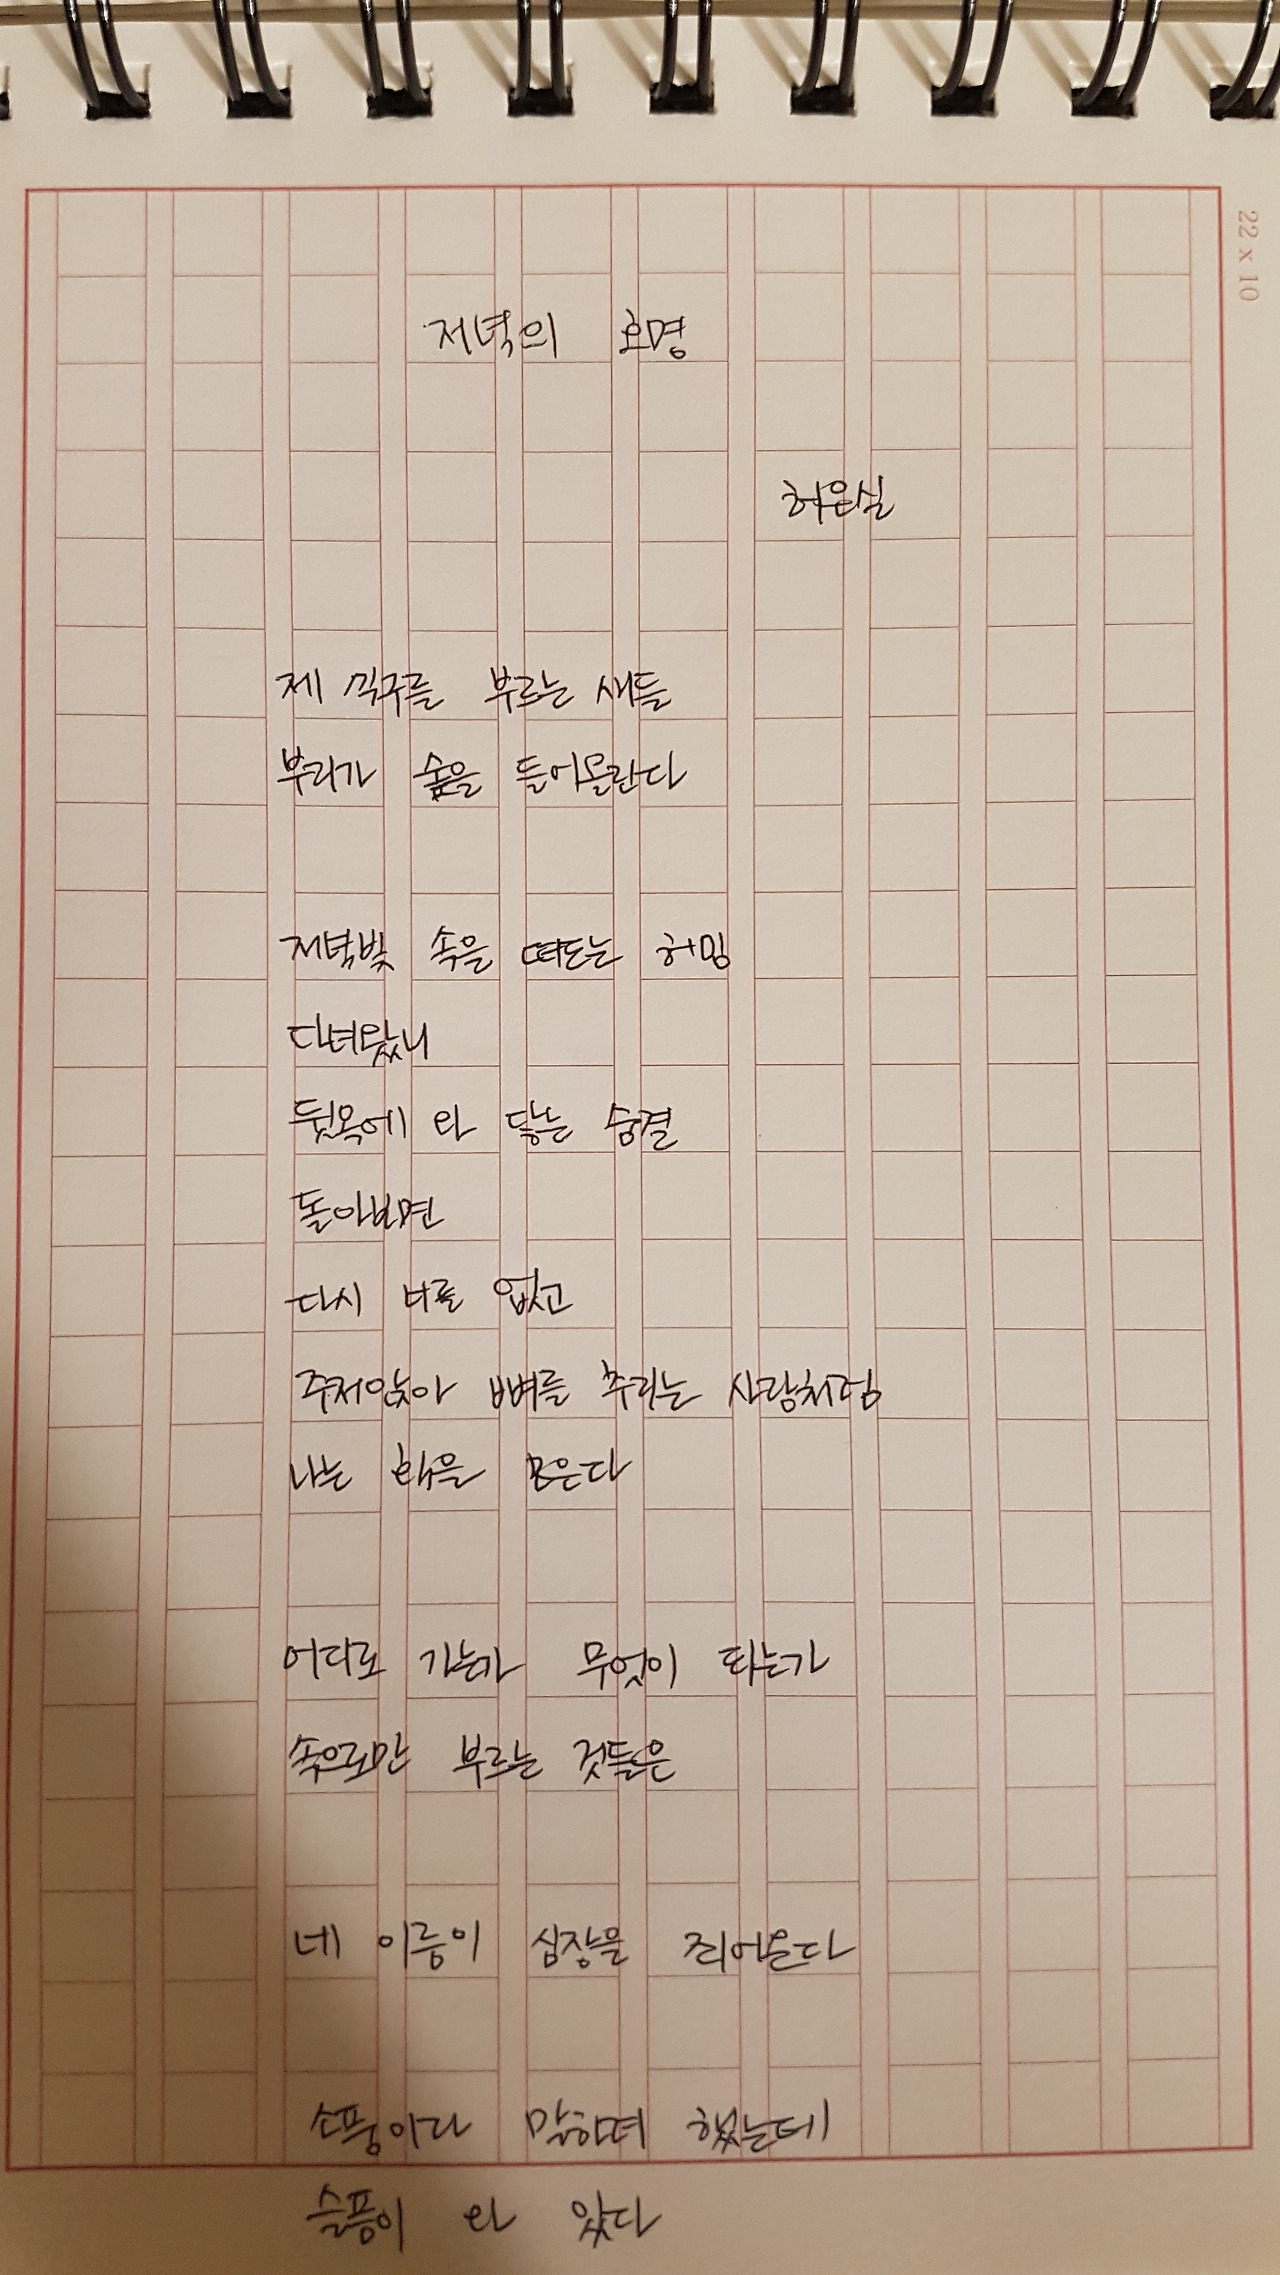 22 x 10
저녁의 호명
허은실
제 식구를 부르는 새들
부리가 숲을 들어올린다
저녁빛 속을 떠도는 허밍
다녀왔니
뒷목에 와 닿는 숨결
돌아보면
다시 너를 없고
주저앉아 뼈를 추리는 사람처럼
나는 획을 모은다
어디로 가는가 무엇이 되는가
속으로만 부르는 것들은
네 이름이 심장을 죄어온다
소풍이라 말하려 했는데
슬픔이 와 있다